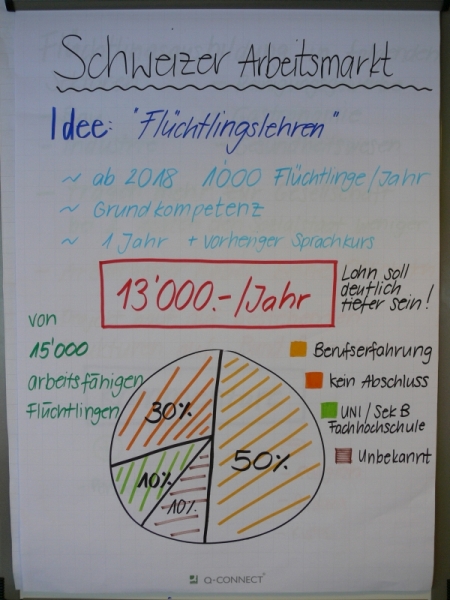 Schweizer Arbeitsmarkt
Idee: "Flüchtlingslehren"
~ ab 2018 1'000 Flüchtlinge/Jahr
~ Grundkompetenz
~ 1 Jahr + vorheriger Sprachkurs
13'000.-/Jahr
Lohn soll
deutlich
tiefer sein!
von
15'000
arbeitsfähigen
Flüchtlingen
Berufserfahrung
kein Abschluss
UNI / Sek B
Fachhochschule
Unbekannt
30%
50%
10%
10%
Q-CONNECT